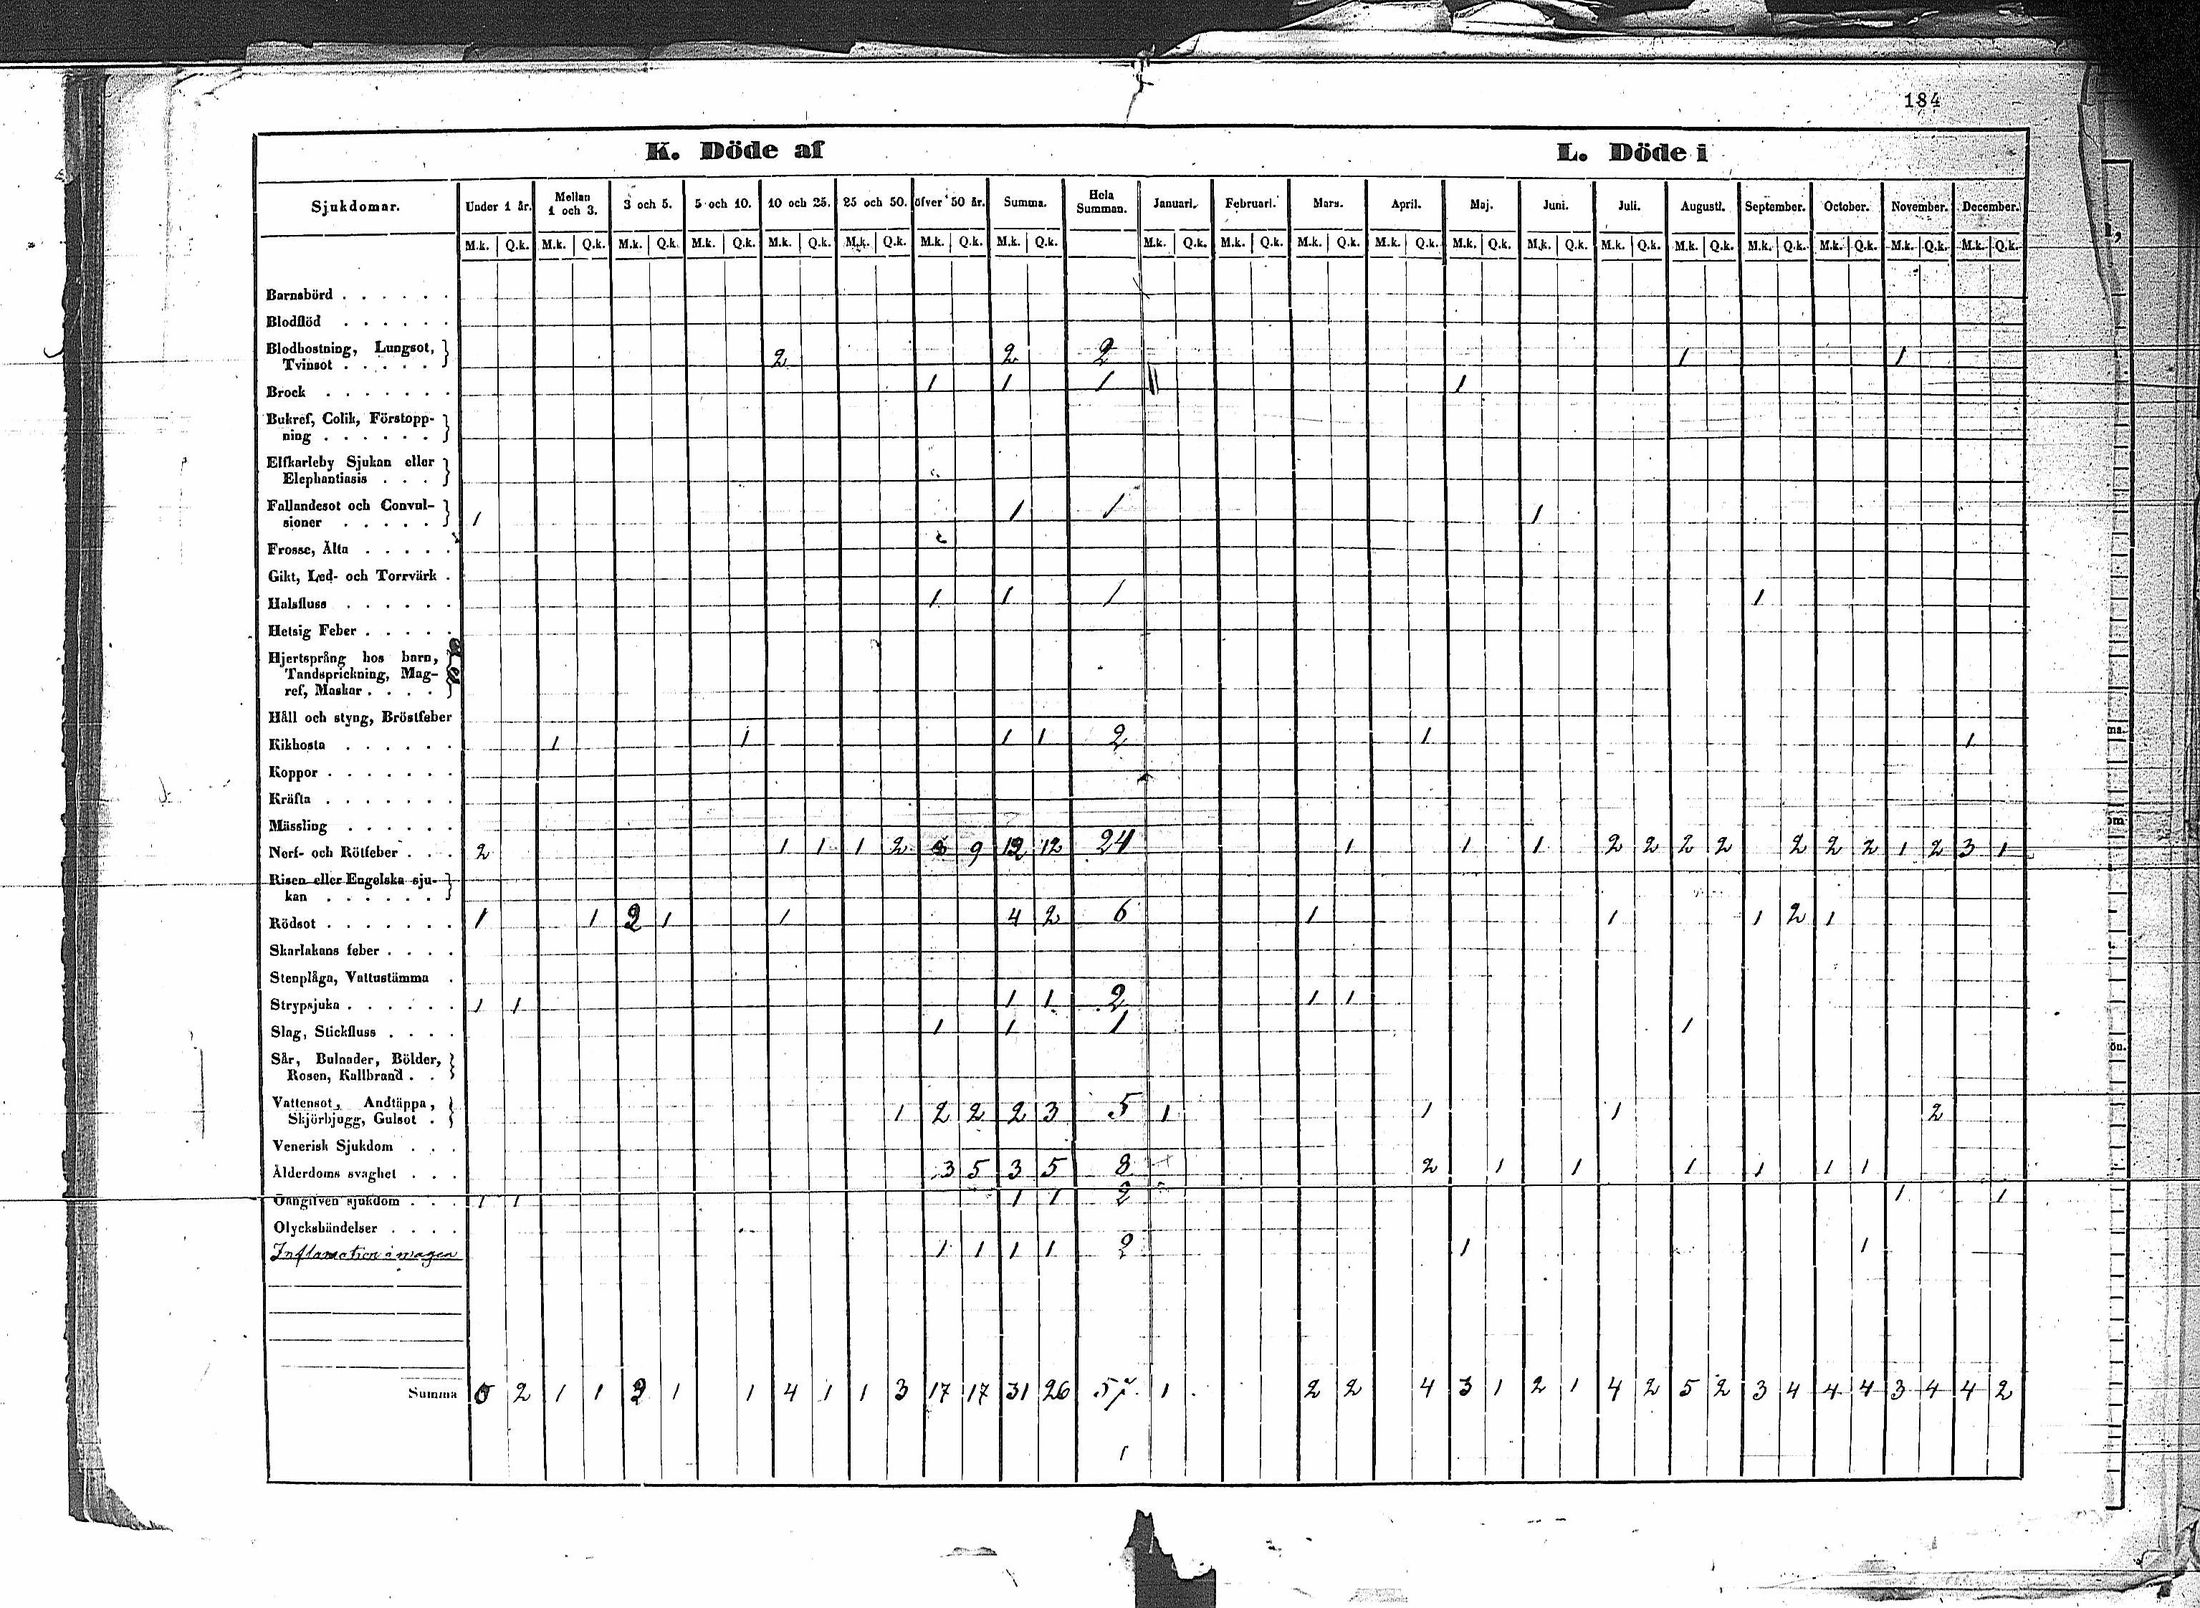 184
K. Döde af L. Döde i
Sjukdomar. Under 1 år. Mellan 1 och 3. 3 och 5. 5 och 10. 10 och 25. 25 och 50. öfver 50 år. Summa. Hela Summan. Januari. Februari. Mars. April. Maj. Juni. Juli. Augusti. September. October. November. December.
M.k. Q.k. M.k. Q.k. M.k. Q.k. M.k. Q.k. M.k. Q.k. M.k. Q.k. M.k. Q.k. M.k. Q.k. M.k. Q.k. M.k. Q.k. M.k. Q.k. M.k. Q.k. M.k. Q.k. M.k. Q.k. M.k. Q.k. M.k. Q.k. M.k. Q.k. M.k. Q.k. M.k. Q.k. M.k. Q.k.
Barnsbörd . . . . . .
Blodflöd . . . . . .
Blodhostning, Lungsot,
Tvinsot . . . . . 2 2 2 1 1
Brock . . . . . . . 1 1 1 1
Bukref, Colik, Förstopp-
ning . . . . . .
Elfkarleby Sjukan eller
Elephantiasis . . .
Fallandesot och Convul-
sioner . . . . . 1 1 1 1
Frosse, Älta . . . . .
Gikt, Led- och Torrvärk .
Halsfluss . . . . . . 1 1 1 1
Hetsig Feber . . . . .
Hjertsprång hos barn,
Tandsprickning, Mag-
ref, Maskar . . . .
Håll och styng, Bröstfeber
Kikhosta . . . . . . 1 1 1 1 2 1 1
Koppor . . . . . . .
Kräfta . . . . . . .
Mässling . . . . . .
Nerf- och Rötfeber . . . 2 1 1 1 2 9 12 12 24 1 1 1 2 2 2 2 2 2 2 1 2 3 1
Risen eller Engelska sju-
kan . . . . . .
Rödsot . . . . . . . 1 1 2 1 1 4 2 6 1 1 1 2 1
Skarlakans feber . . . .
Stenplåga, Vattustämma .
Strypsjuka . . . . . . 1 1 1 1 2 1 1
Slag, Stickfluss . . . . 1 1 1 1
Sår, Bulnader, Bölder,
Rosen, Kallbrand . .
Vattensot, Andtäppa,
Skjörbjugg, Gulsot . 1 2 2 2 3 5 1 1 1 2
Venerisk Sjukdom . . .
Ålderdoms svaghet . . . 3 5 3 5 8 2 1 1 1 1 1 1
Oangifven sjukdom . . . 1 1 1 1 2 1 1
Olyckshändelser . . . .
Inflamation i magen 1 1 1 1 2 1 1
Summa 2 1 1 1 1 4 1 1 3 17 17 31 26 57 1 2 2 4 3 1 2 1 4 2 5 2 3 4 4 4 3 4 4 2
1